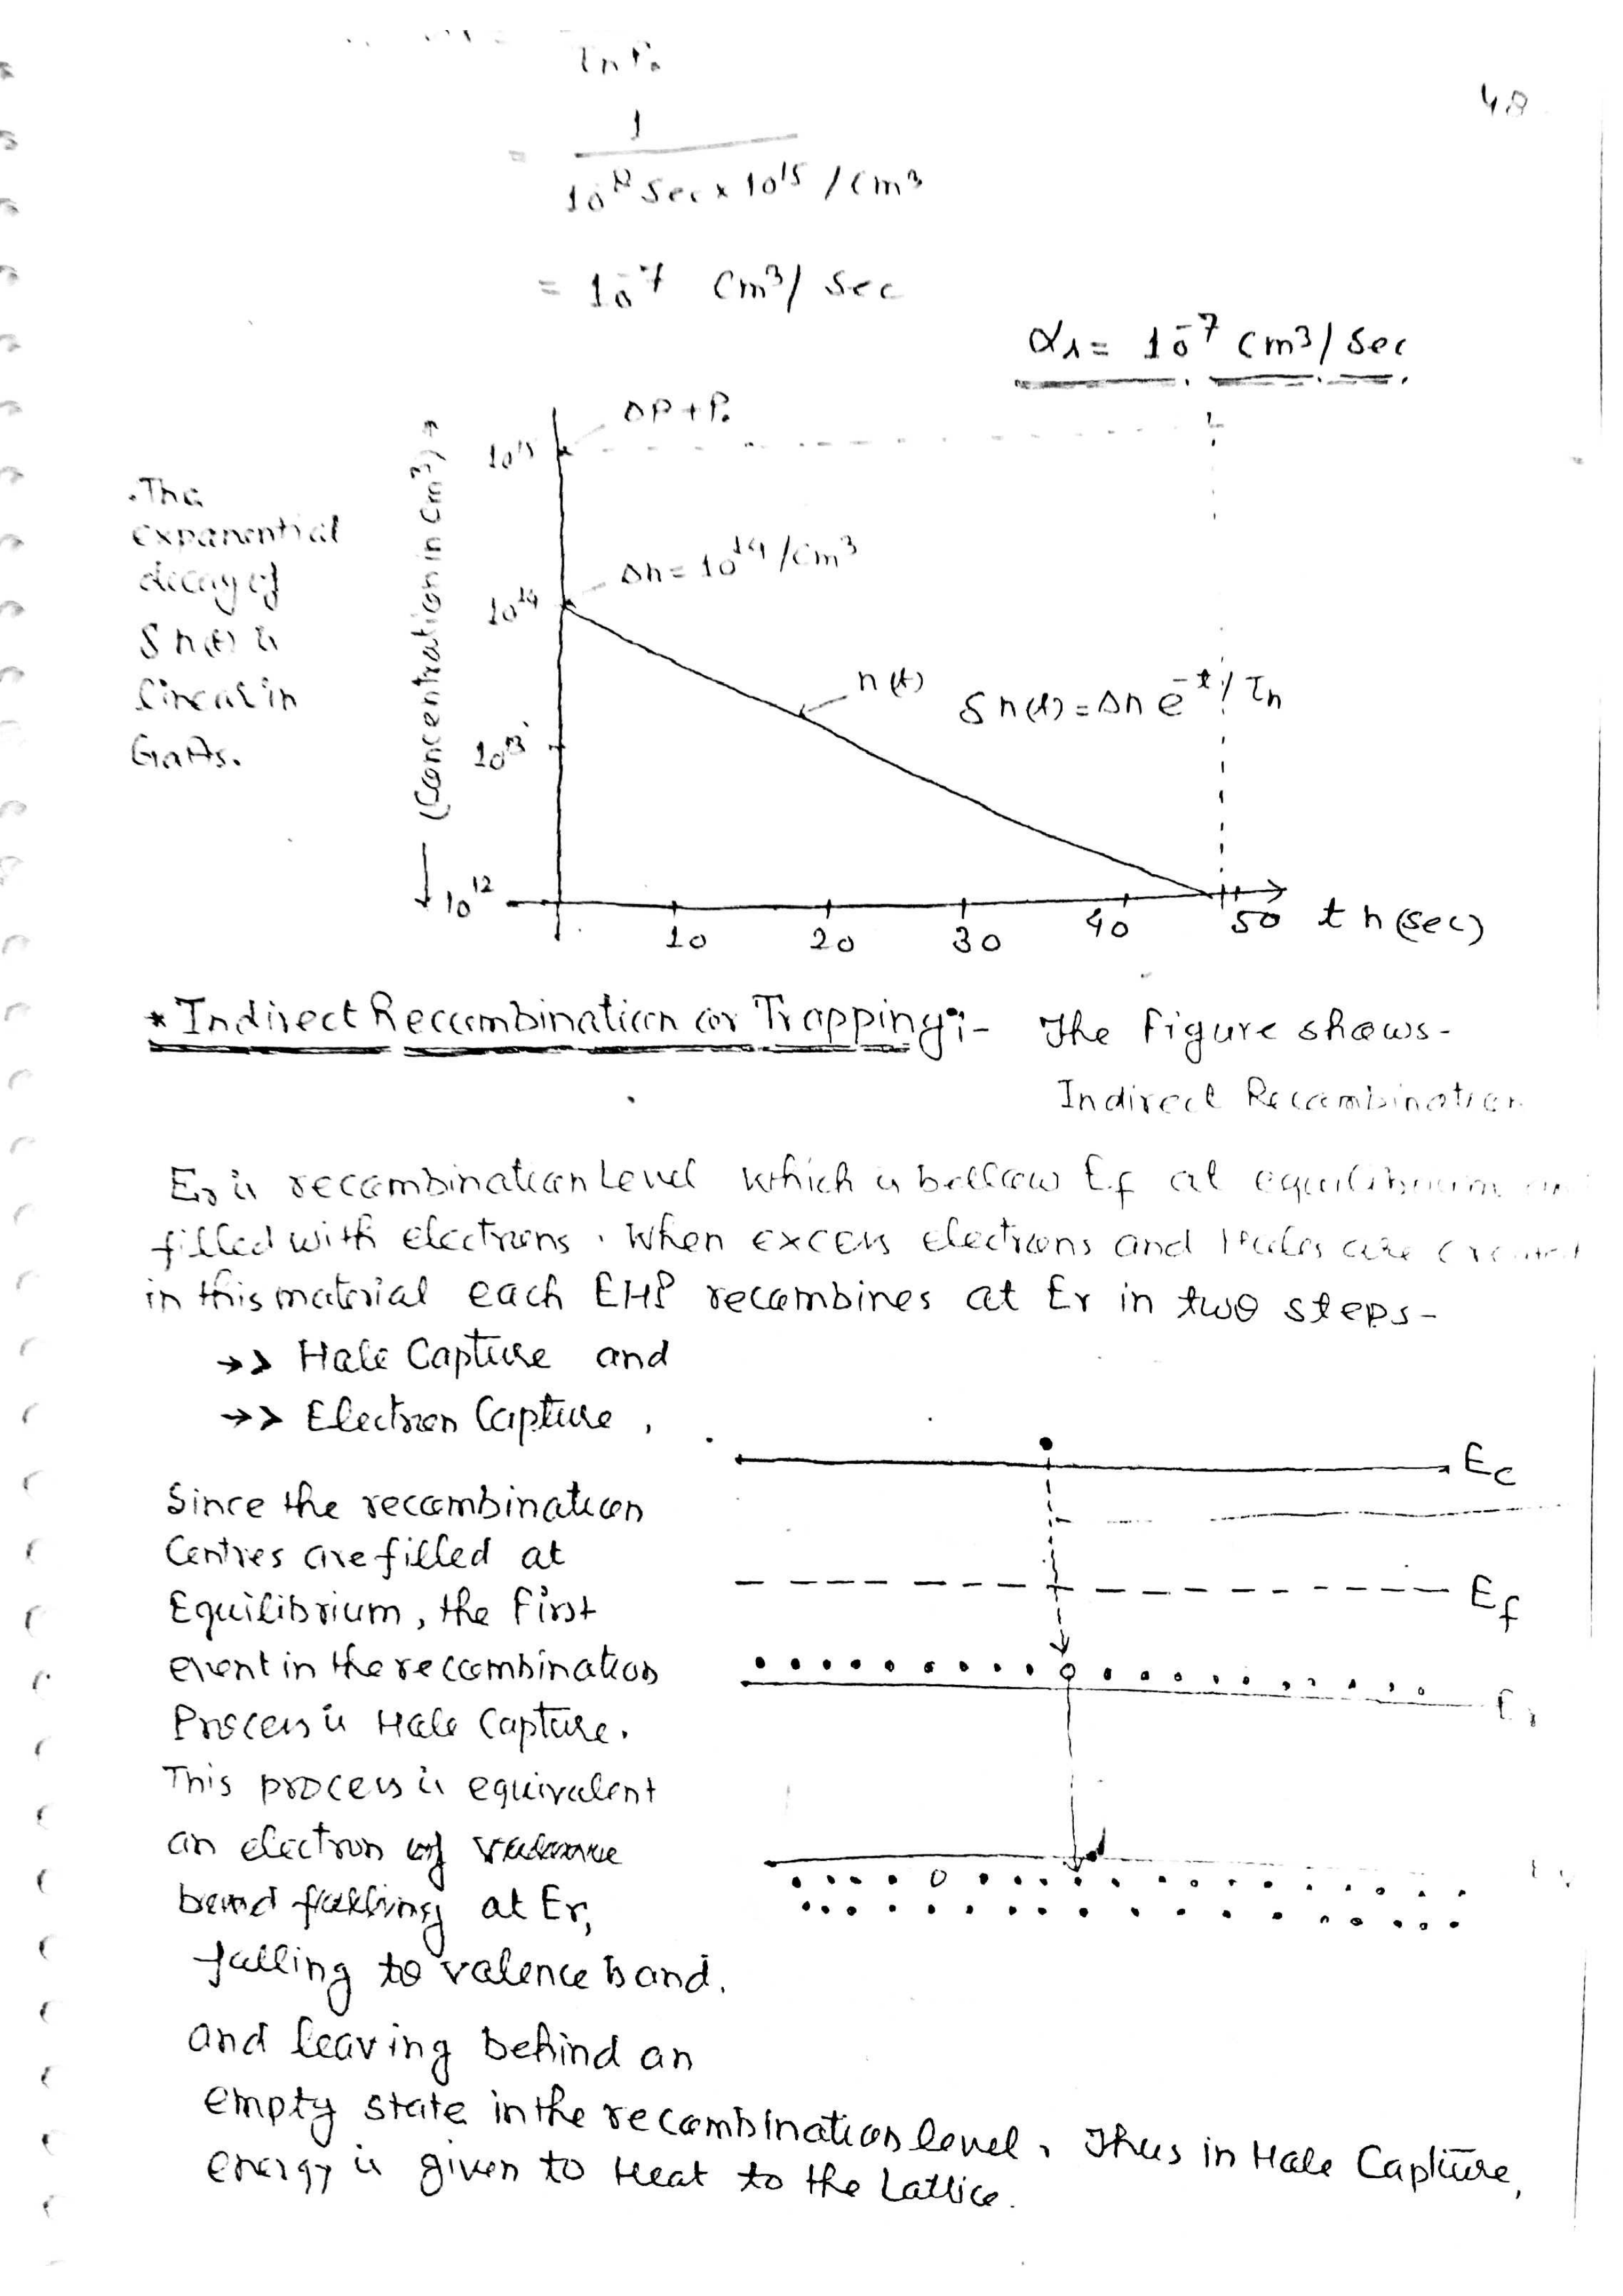 τn P₀
48
= 1
10⁻⁸ Sec x 10¹⁵ / cm³
= 10⁻⁷ cm³/ Sec
αr = 10⁻⁷ cm³/ Sec
ΔP + P₀
10¹⁵
(Concentration in cm³) →
. The
exponential
decay of
δn(t) is
linear in
GaAs.
Δn = 10¹⁴ /cm³
10¹⁴
n(t)
δn(t) = Δn e⁻ᵗ/ τn
10¹³
10¹²
10 20 30 40 50 t n (sec)
* Indirect Recombination or Trapping :- The figure shows-
Indirect Recombination
Er is recombination Level which is bellow Ef at equilibrium
filled with electrons . When excess electrons and Holes are created
in this material each EHP recombines at Er in two steps -
→> Hole Capture and
→> Electron Capture ,
Ec
Since the recombination
Centres are filled at
Equilibrium, the first
Ef
event in the recombination
Process is Hole Capture.
This process is equivalent
an electron of valance
band falling at Er,
falling to valence band.
and leaving behind an
empty state in the recombination level. Thus in Hole Capture,
energy is given to Heat to the Lattice.